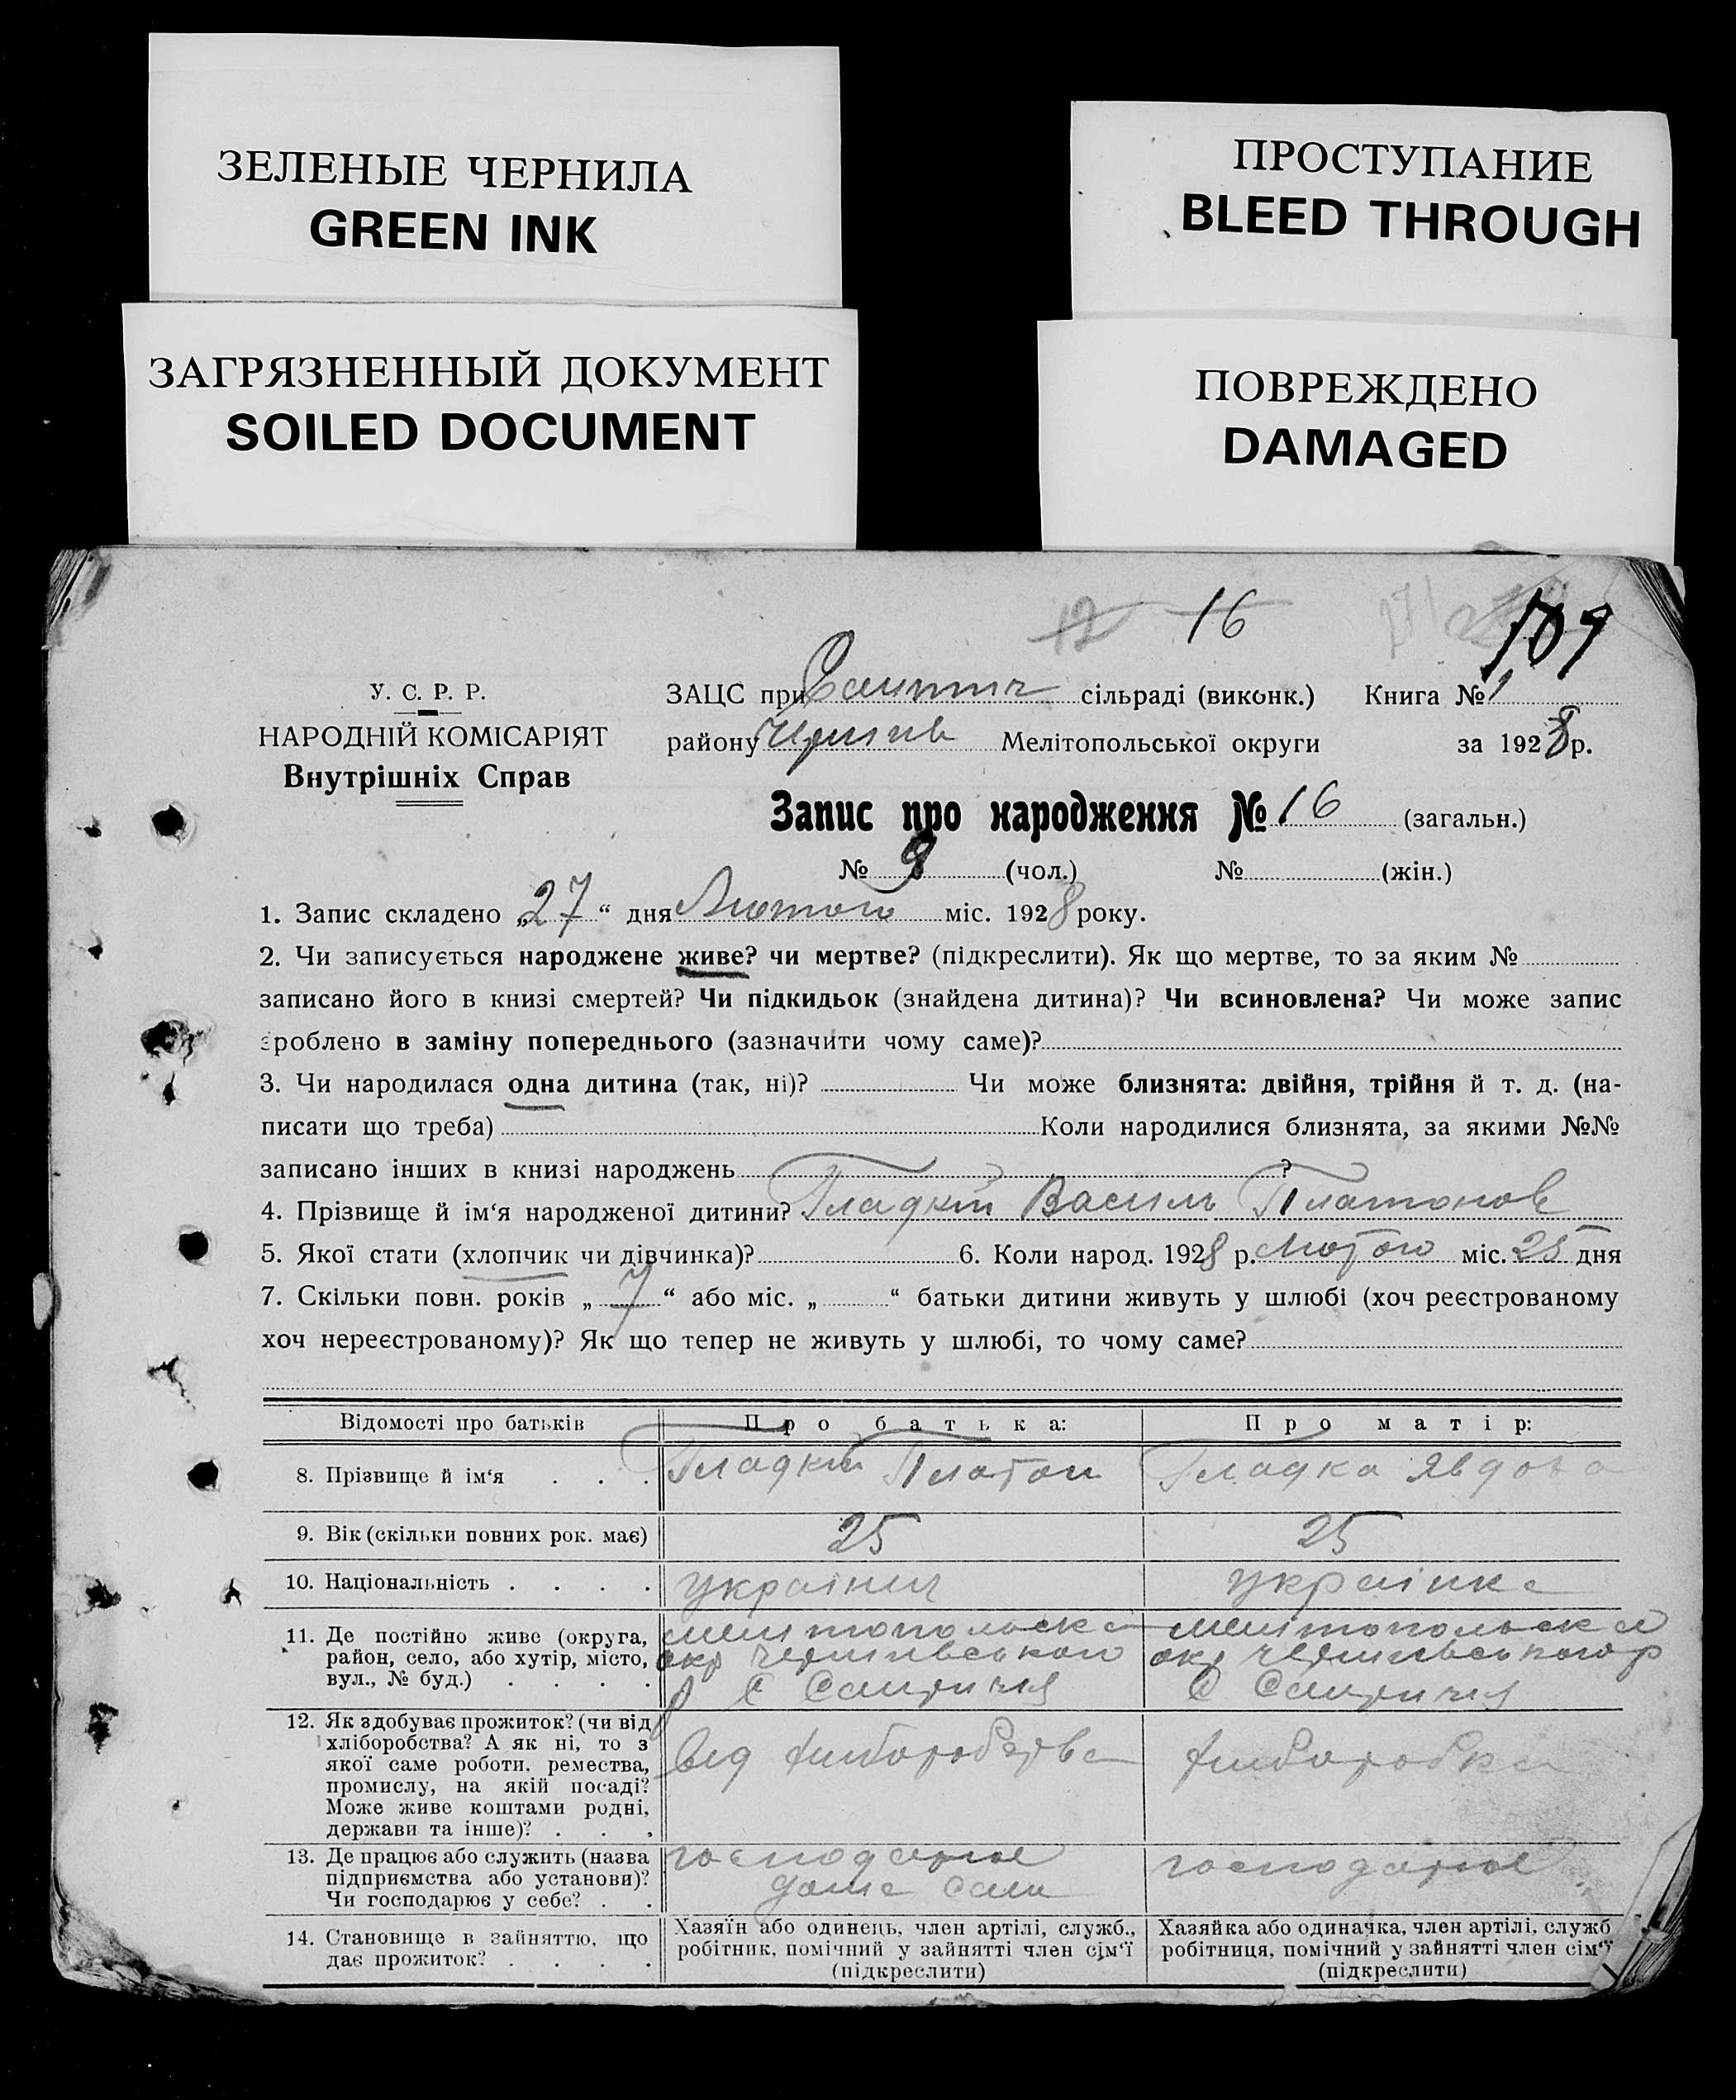 ЗЕЛЕНЫЕ ЧЕРНИЛА
GREEN INK
ПРОСТУПАНИЕ
BLEED THROUGH
ЗАГРЯЗНЕННЫЙ ДОКУМЕНТ
SOILED DOCUMENT
ПОВРЕЖДЕНО
DAMAGED
12 16 109
У. С. Р. Р.
НАРОДНІЙ КОМІСАРІЯТ
Внутрішніх Справ
ЗАЦС при сільраді (виконк.) Книга № 1
району Мелітопольської округи за 1928 р.
Запис про народження № 16 (загальн.)
№ 9 (чол.) № (жін.)
1. Запис складено „27“ дня Лютого міс. 1928 року.
2. Чи записується народжене живе? чи мертве? (підкреслити). Як що мертве, то за яким №
записано його в книзі смертей? Чи підкидьок (знайдена дитина)? Чи всиновлена? Чи може запис
зроблено в заміну попереднього (зазначити чому саме)?
3. Чи народилася одна дитина (так, ні)? Чи може близнята: двійня, трійня й т. д. (на-
писати що треба) Коли народилися близнята, за якими №№
записано інших в книзі народжень ?
4. Прізвище й ім‘я народженої дитини? Гладкій Василь Платонов
5. Якої стати (хлопчик чи дівчинка)? 6. Коли народ. 1928 р. Лютого міс. 25 дня
7. Скільки повн. років „7“ або міс. „ “ батьки дитини живуть у шлюбі (хоч реєстрованому
хоч нереєстрованому)? Як що тепер не живуть у шлюбі, то чому саме?
Відомості про батьків Про батька: Про матір:
8. Прізвище й ім‘я . . . Гладкій Платон Гладка Явдоха
9. Вік (скільки повних рок. має) 25 25
10. Національність . . . . українец українка
11. Де постійно живе (округа,
район, село, або хутір, місто,
вул., № буд.) . . . .
мелитопольска
окр Чернигвського
р С
мелитопольска
окр Чернигвського р
С
12. Як здобуває прожиток? (чи від
хліборобства? А як ні, то з
якої саме роботи, ремества,
промислу, на якій посаді?
Може живе коштами родні,
держави та інше)? . . .
Від хліборобства
хліборобка
13. Де працює або служить (назва
підприємства або установи)?
Чи господарює у себе? . .
господарює
дома
господарює
14. Становище в зайняттю, що
дає прожиток? . . . .
Хазяїн або одинець, член артілі, служб.,
робітник, помічний у зайнятті член сім‘ї
(підкреслити)
Хазяйка або одиначка, член артілі, служб
робітниця, помічний у зайнятті член сім‘ї
(підкреслити)